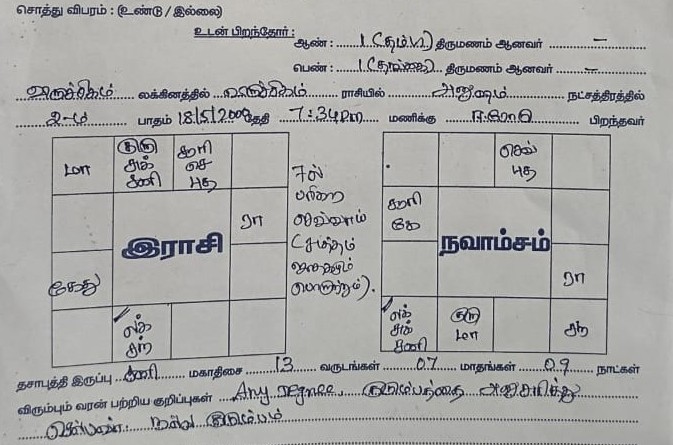 சொத்து விபரம் : (உண்டு / இல்லை)
உடன் பிறந்தோர் :
ஆண் : 1 (தம்பி) திருமணம் ஆனவர் –
பெண் : 1 (தங்கை) திருமணம் ஆனவர் –
விருச்சிகம் லக்கினத்தில் விருச்சிகம் ராசியில் அனுஷம் நட்சத்திரத்தில்
2-ம் பாதம் 18/5/2000 தேதி 7:34 pm மணிக்கு ஈரோடு பிறந்தவர்
மா
குரு
சுக்
சனி
சூரி
செ
புத
ரா
இராசி
கேது
லக்
சந்
7ல்
(சம்மதம்
செவ்
புத
சூரி
கே
நவாம்சம்
ரா
லக்
சுக்
சனி
குரு
மா
சந்
தசாபுத்தி இருப்பு சனி மகாதிசை 13 வருடங்கள் 07 மாதங்கள் 09 நாட்கள்
விரும்பும் வரன் பற்றிய குறிப்புகள் Any Degree, குடும்பத்தை அனுசரித்து
நல்ல குடும்பம்